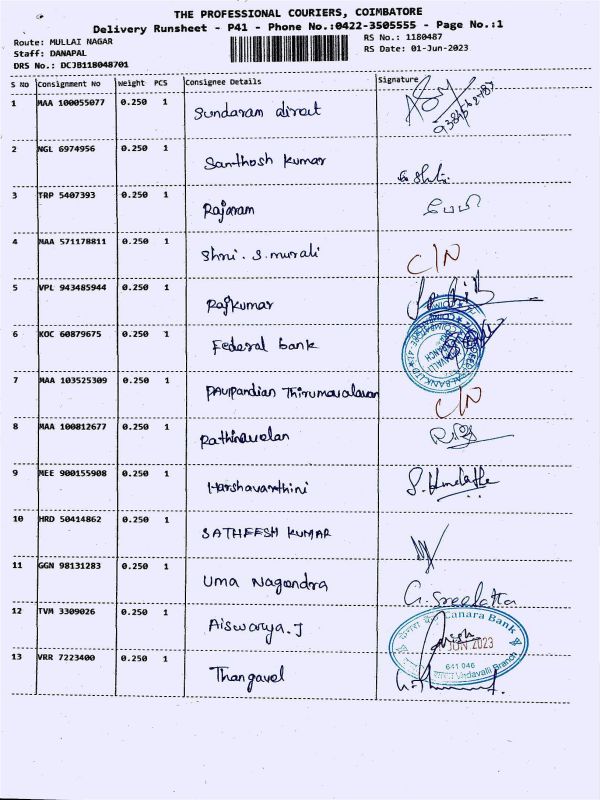 THE PROFESSIONAL COURIERS, COIMBATORE
Delivery Runsheet - P41 - Phone No.:0422-3505555 - Page No.:1
Route: MULLAI NAGAR RS No.: 1180487
Staff: DANAPAL RS Date: 01-Jun-2023
DRS No.: DCJB118048701
S No Consignment No Weight PCS Consignee Details Signature
1 MAA 100055077 0.250 1 Sundaram direct
2 NGL 6974956 0.250 1 Santhosh kumar
3 TRP 5407393 0.250 1 Rajaram
4 MAA 571178811 0.250 1 Shri. S. murali C/N
5 VPL 943485944 0.250 1 Rajkumar
6 KOC 60879675 0.250 1 Federal bank
7 MAA 103525309 0.250 1 Paulpandian Thirumavalavan C/N
8 MAA 100812677 0.250 1 Rathinavelan
9 MEE 900155908 0.250 1 Harshavarthini
10 HRD 50414862 0.250 1 SATHEESH KUMAR
11 GGN 98131283 0.250 1 Uma Nagendra G. Sreelatha
12 TVM 3309026 0.250 1 Aiswarya. J
Canara Bank
JUN 2023
641 046
Vadavalli Branch
13 VRR 7223400 0.250 1 Thangavel